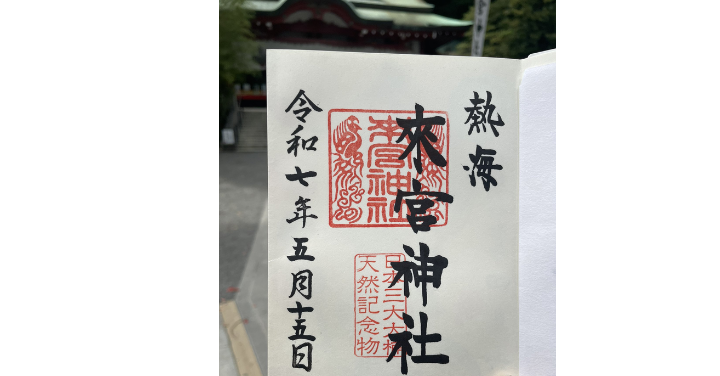 熱海
來宮神社
令和七年五月十五日
來宮神社
日本三大大楠
天然記念物